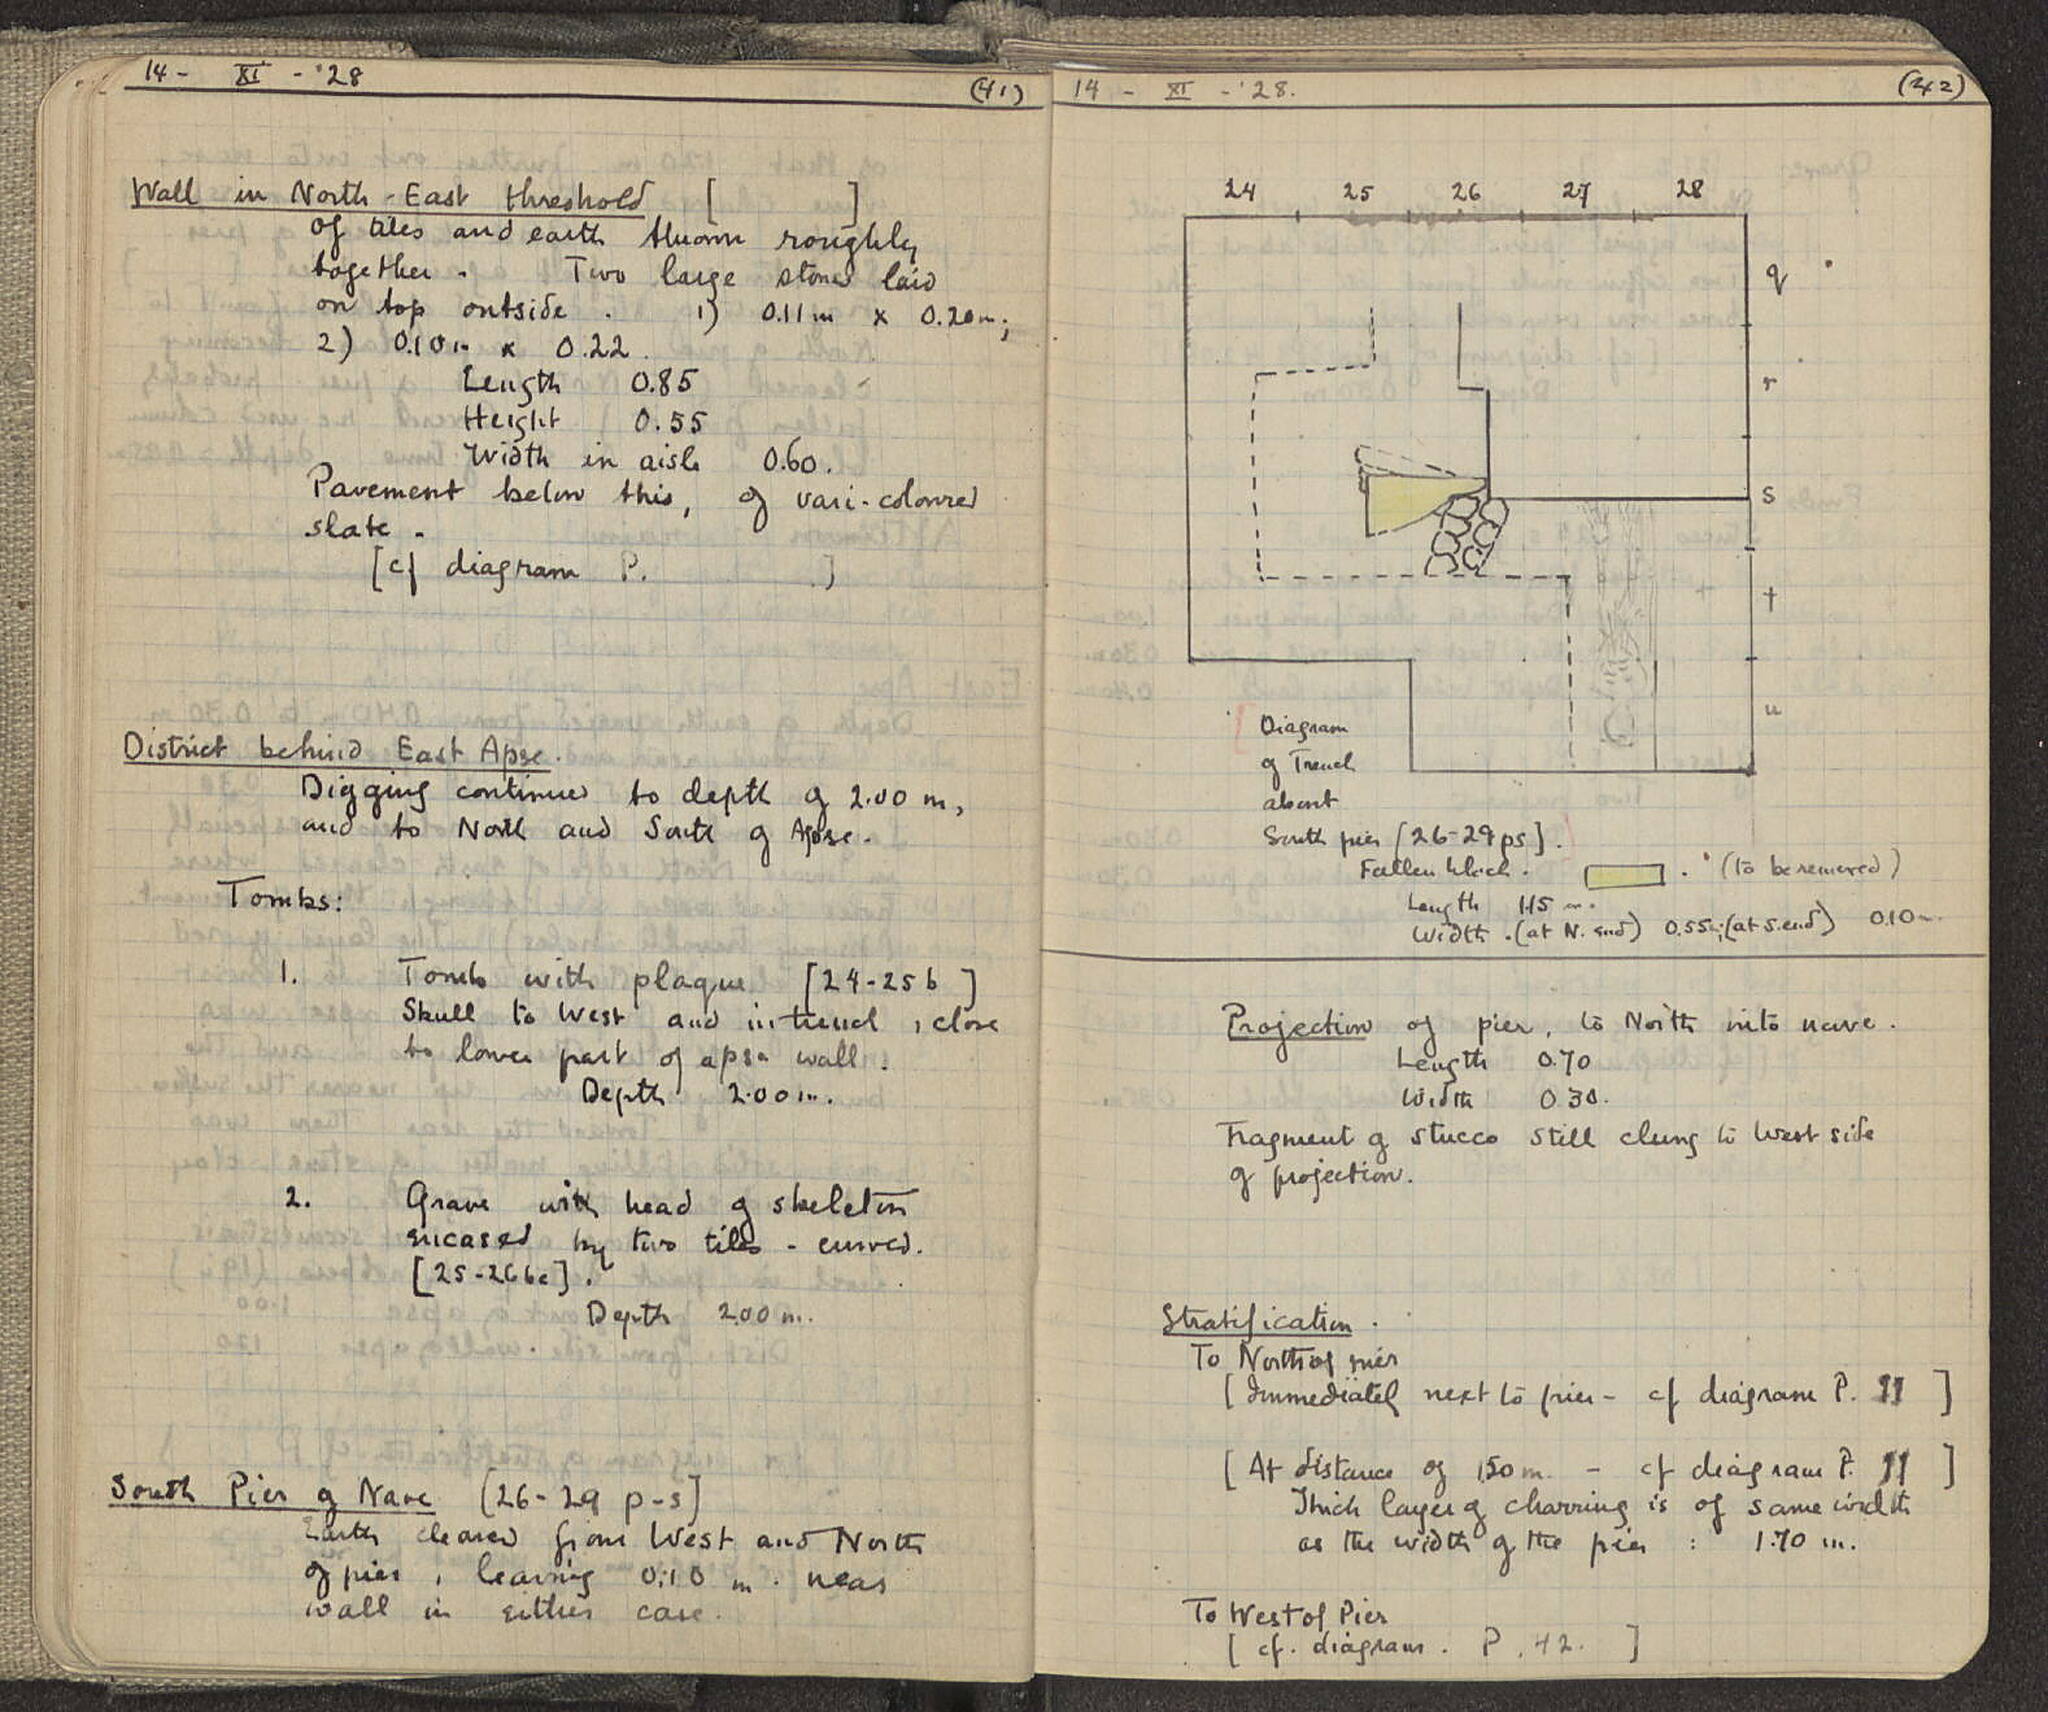 14 - XI - '28
(41)
Wall in North-East threshold [ ]
of tiles and earth thrown roughly
together. Two large stones laid
on top outside. 1) 0.11m x 0.20m;
2) 0.10m x 0.22.
Length 0.85
Height 0.55
Width in aisle 0.60.
Pavement below this, of vari-coloured
slate.
[cf diagram P. ]
District behind East Apse.
Digging continued to depth of 2.00 m,
and to North and South of Apse.
Tombs:
1. Tomb with plaque [24-25 b ]
Skull to West and in trench, close
to lower part of apse wall.
Depth 2.00m.
2. Grave with head of skeleton
encased by two tiles - curved.
[25-26 bc].
Depth 2.00 m.
South Pier of Nave [26-29 p-s]
Earth cleared from West and North
of pier, leaving 0.10 m. near
wall in either case.
14 - XI - '28.
(42)
24 25 26 27 28
q
r
s
t
u
Diagram
of Trench
about
South pier [26-29 ps].
Fallen block. . (To be removed)
Length 1.15 m.
Width. (at N. end) 0.55m; (at S. end) 0.10m.
Projection of pier, to North into nave.
Length 0.70
Width 0.30.
Fragment of stucco still clung to West side
of projection.
Stratification.
To North of pier
[Immediately next to pier - cf diagram P. ]
[At distance of 1.50 m. - cf diagram P. ]
Thick layer of charring is of same width
as the width of the pier : 1.70 m.
To West of Pier
[cf. diagram. P. 42. ]